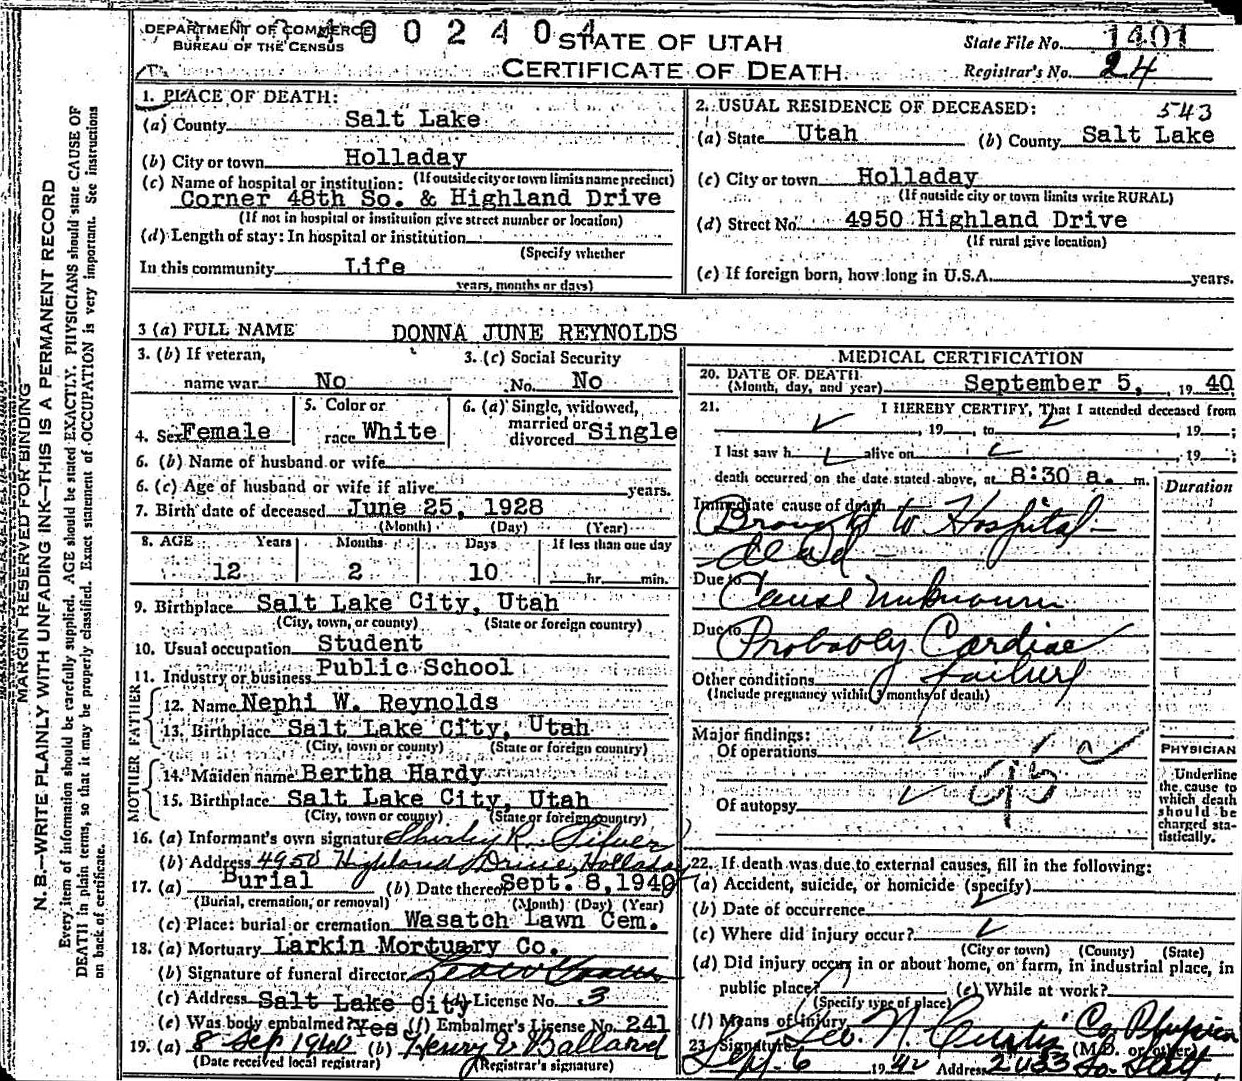 DEPARTMENT OF COMMERCE
BUREAU OF THE CENSUS
4 0 0 2 4 0 4
STATE OF UTAH
CERTIFICATE OF DEATH
State File No. 1401
Registrar's No. 24
MARGIN RESERVED FOR BINDING
N. B.—WRITE PLAINLY WITH UNFADING INK—THIS IS A PERMANENT RECORD
Every item of information should be carefully supplied. AGE should be stated EXACTLY. PHYSICIANS should state CAUSE OF
DEATH in plain terms, so that it may be properly classified. Exact statement of OCCUPATION is very important. See instructions
on back of certificate.
1. PLACE OF DEATH:
(a) County Salt Lake
(b) City or town Holladay
(If outside city or town limits name precinct)
(c) Name of hospital or institution:
Corner 48th So. & Highland Drive
(If not in hospital or institution give street number or location)
(d) Length of stay: In hospital or institution
(Specify whether
In this community Life
years, months or days)
2. USUAL RESIDENCE OF DECEASED: 543
(a) State Utah (b) County Salt Lake
(c) City or town Holladay
(If outside city or town limits write RURAL)
(d) Street No. 4950 Highland Drive
(If rural give location)
(e) If foreign born, how long in U.S.A. years.
3 (a) FULL NAME DONNA JUNE REYNOLDS
3. (b) If veteran, 3. (c) Social Security
name war No No. No
4. Sex Female 5. Color or race White 6. (a) Single, widowed, married or divorced Single
6. (b) Name of husband or wife
6. (c) Age of husband or wife if alive years.
7. Birth date of deceased June 25, 1928
(Month) (Day) (Year)
8. AGE Years Months Days If less than one day
12 2 10 hr. min.
9. Birthplace Salt Lake City, Utah
(City, town, or county) (State or foreign country)
10. Usual occupation Student
11. Industry or business Public School
FATHER
12. Name Nephi W. Reynolds
13. Birthplace Salt Lake City, Utah
(City, town or county) (State or foreign country)
MOTHER
14. Maiden name Bertha Hardy
15. Birthplace Salt Lake City, Utah
(City, town or county) (State or foreign country)
16. (a) Informant's own signature Shirley R. Silver
(b) Address 4950 Highland Drive, Holladay
17. (a) Burial (b) Date thereof Sept. 8, 1940
(Burial, cremation, or removal) (Month) (Day) (Year)
(c) Place: burial or cremation Wasatch Lawn Cem.
18. (a) Mortuary Larkin Mortuary Co.
(b) Signature of funeral director
(c) Address Salt Lake City (d) License No. 3
(e) Was body embalmed? Yes (f) Embalmer's License No. 241
19. (a) 8 Sep 1940 (b) Henry V Ballard
(Date received local registrar) (Registrar's signature)
MEDICAL CERTIFICATION
20. DATE OF DEATH
(Month, day, and year) September 5, 1940
21. I HEREBY CERTIFY, That I attended deceased from
, 19 , to , 19 ;
I last saw h alive on , 19 ;
death occurred on the date stated above, at 8:30 a. m.
Duration
Immediate cause of death
Brought to Hospital—
dead—
Due to Cause Unknown
Due to Probably Cardiac
failure
Other conditions
(Include pregnancy within 3 months of death)
Major findings:
Of operations
Of autopsy
95 a
PHYSICIAN
Underline
the cause to
which death
should be
charged sta-
tistically.
22. If death was due to external causes, fill in the following:
(a) Accident, suicide, or homicide (specify)
(b) Date of occurrence
(c) Where did injury occur?
(City or town) (County) (State)
(d) Did injury occur in or about home, on farm, in industrial place, in
public place? (e) While at work?
(Specify type of place)
(f) Means of injury
23. Signature Geo. N. Curtis Co Physician
(M.D. or other)
Sept. 6 1940 Address 2033 So. State